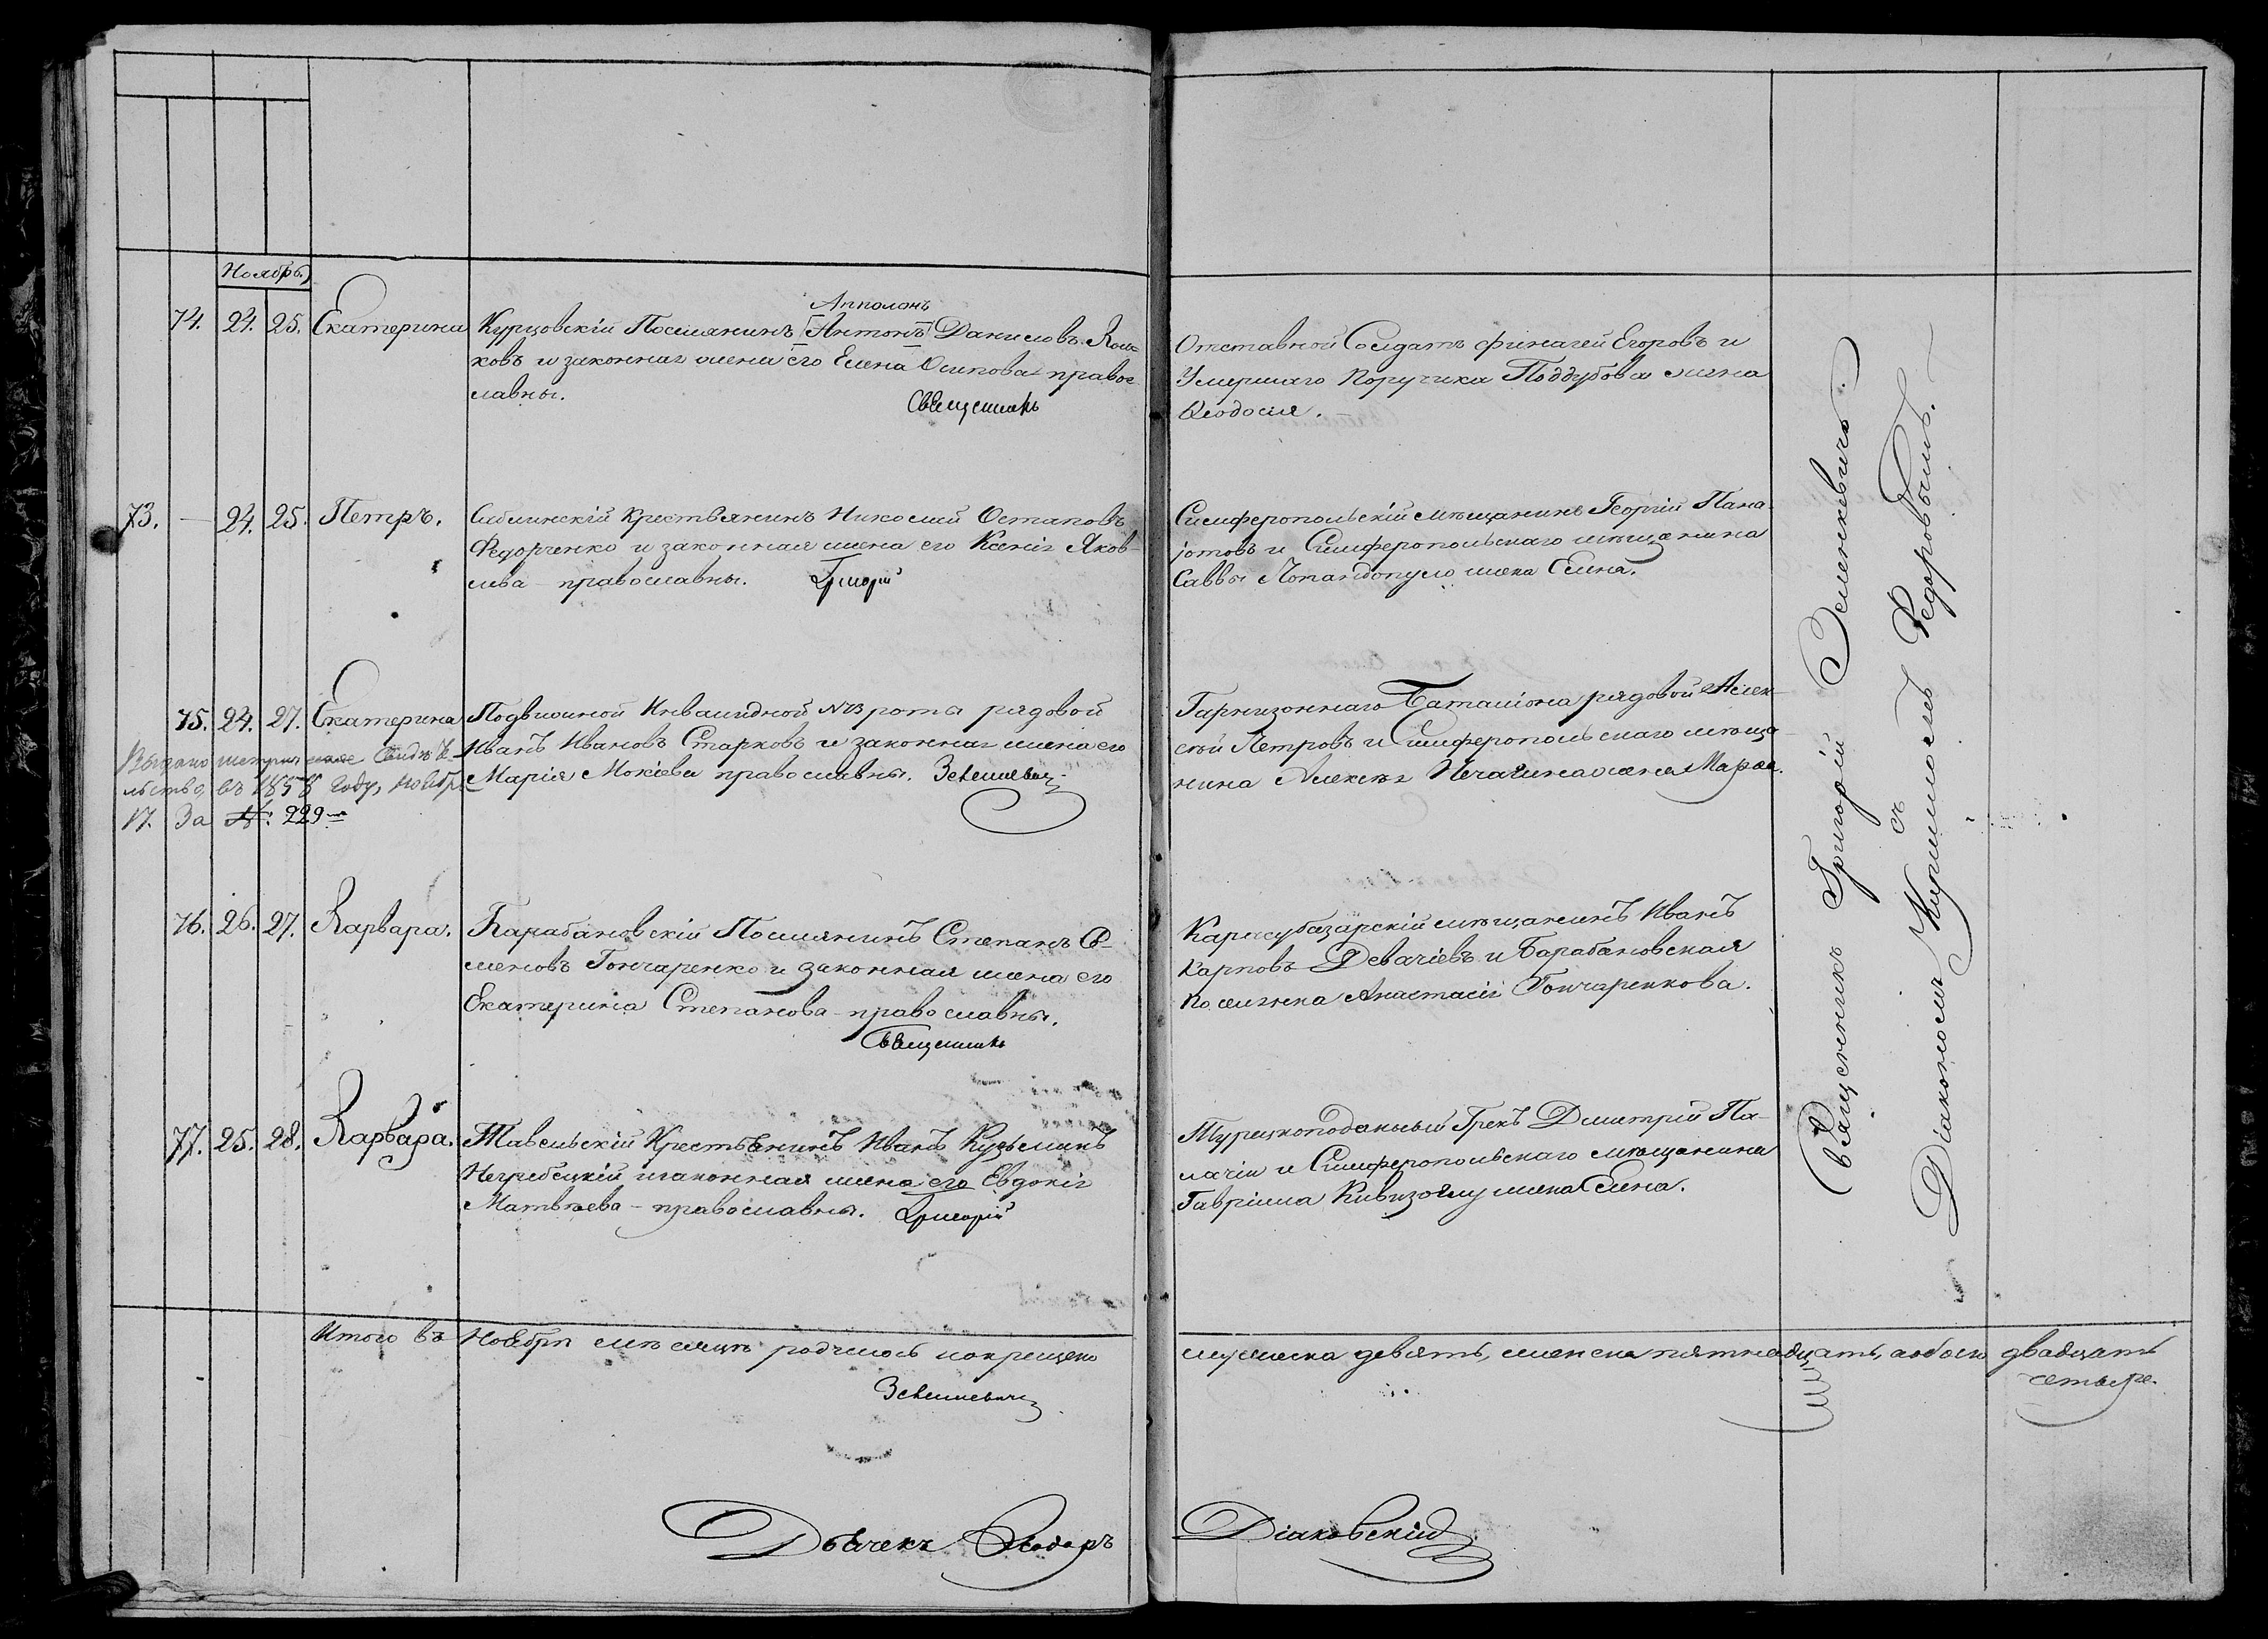 Ноябрь.
Апполонъ
74. 24. 25. Екатерина Курцовскій Поселянинъ [Антонъ] Даниловъ
ковъ и законная жена его Елена Осипова правос-
лавны.
Священникъ
Отставной Солдатъ Финагей Егоровъ и
Умершаго Поручика Поддубова жена
Ѳеодосія.
73. — 24. 25. Петръ. Саблинскій Крестьянинъ Николай Остаповъ
Федорченко и законная жена его Ксенія Яков-
лева - православны. Григорій
Симферопольскій мѣщанинъ Георгій Пана-
іотовъ и Симферопольскаго мѣщанина
Саввы жена Елена.
75. 24. 27. Екатерина Подвижной Инвалидной №13 роты рядовой
Иванъ Ивановъ Старковъ и законная жена его
Марія Мокіева православны. Зеленкевичъ
Выдано метрическое Свидѣте-
льство, въ 1858 году, Ноябр.
17. За №: 229мъ
Гарнизоннаго Баталіона рядовой Алек-
сѣй Петровъ и Симферопольскаго мѣща-
нина Алексѣя жена Марѳа.
76. 26. 27. Варвара. Барабановскій Поселянинъ Степанъ Се-
меновъ Гончаренко и законная жена его
Екатерина Степанова - православны.
Священникъ
Карасубазарскій мѣщанинъ Иванъ
Карповъ Девачіевъ и Барабановская
поселянка Анастасія Гончаренкова.
77. 25. 28. Варвара. Тавельскій Крестьянинъ Иванъ Кузьминъ
Негребецкій и законная жена его Евдокія
Матвѣева - православны. Григорій
Турецкоподаный Грекъ Дмитрій Па-
лачіи и Симферопольскаго мѣщанина
Гавріила жена Елена.
Священникъ Григорій Зеленкевичъ.
съ
Діакономъ Кирилломъ Ѳедоровымъ.
Итого въ Ноябрѣ мѣсяцѣ родилось и окрещено
мужеска девять, женска пятнадцать, а обоего двадцать
четыре.
Зеленкевичъ
Дьячекъ Ѳеодоръ
Діаковскій